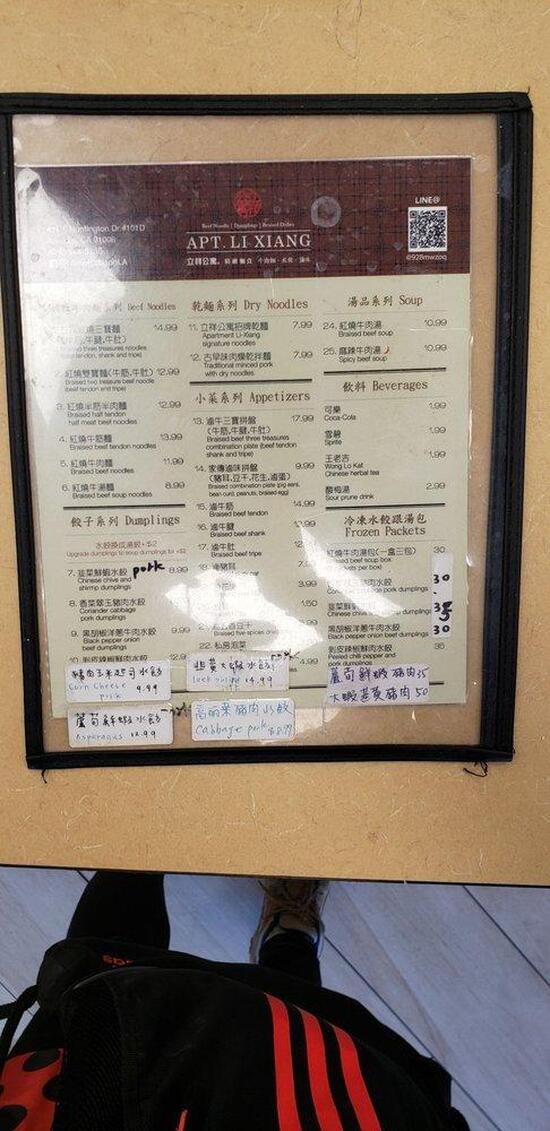 Huntington Dr #101D
CA 91006
LINE@
@928mwzoq
Beef Noodle | Dumplings | Braised Dishes
APT. LI XIANG
立祥公寓
Beef Noodles
三寶麵
牛腱,牛肚)
three treasures noodles
tendon, shank and tripe)
14.99
紅燒雙寶麵(牛筋,牛肚)
12.99
Braised two treasure beef noodle
(beef tendon and tripe)
3. 紅燒半筋半肉麵
12.99
Braised half tendon
half meat beef noodles
4. 紅燒牛筋麵
13.99
Braised beef tendon noodles
5. 紅燒牛肉麵
11.99
Braised beef noodles
6. 紅燒牛湯麵
8.99
Braised beef soup noodles
餃子系列 Dumplings
水餃換成湯餃,+$2
Upgrade dumplings to soup dumplings for +$2
7. 韮菜鮮蝦水餃 pork
8.99
Chinese chive and
shrimp dumplings
8. 香菜翠玉豬肉水餃
Coriander cabbage
pork dumplings
9. 黑胡椒洋蔥牛肉水餃
12.99
Black pepper onion
beef dumplings
10. 剝皮辣椒鮮肉水餃
乾麵系列 Dry Noodles
11. 立祥公寓招牌乾麵
7.99
Apartment Li-Xiang
signature noodles
12. 古早味肉燥乾拌麵
7.99
Traditional minced pork
with dry noodles
小菜系列 Appetizers
13. 滷牛三寶拼盤
17.99
(牛筋,牛腱,牛肚)
Braised beef three treasures
combination plate (beef tendon
shank and tripe)
14. 家傳滷味拼盤
9.99
(豬耳,豆干,花生,滷蛋)
Braised combination plate (pig ears,
bean curd, peanuts, braised egg)
15. 滷牛筋
14.99
Braised beef tendon
16. 滷牛腱
13.99
Braised beef shank
17. 滷牛肚
Braised beef tripe
18. 滷豬耳
3.99
1.50
Braised five spices dried
22. 私房泡菜
湯品系列 Soup
24. 紅燒牛肉湯
10.99
Braised beef soup
25. 麻辣牛肉湯
10.99
Spicy beef soup
飲料 Beverages
可樂
1.99
Coca-Cola
雪碧
1.99
Sprite
王老吉
1.99
Wong Lo Kat
Chinese herbal tea
酸梅湯
2.99
Sour prune drink
冷凍水餃跟湯包
Frozen Packets
紅燒牛肉湯包(一盒三包)
30
Braised beef soup box
packets per box
豬肉水餃
30
cabbage pork dumplings
韮菜鮮
35
黑胡椒洋蔥牛肉水餃
30
Black pepper onion
beef dumplings
剝皮辣椒鮮肉水餃
35
Peeled chili pepper and
pork dumplings
豬肉玉米起司水餃
Corn Cheese 9.99
pork
韭黃大蝦水餃
14.99
蘆筍鮮蝦豬肉35
大蝦韮黃豬肉50
蘆筍鮮蝦水餃
Asparagus 12.99
高丽菜豬肉水餃
Cabbage pork $8.99